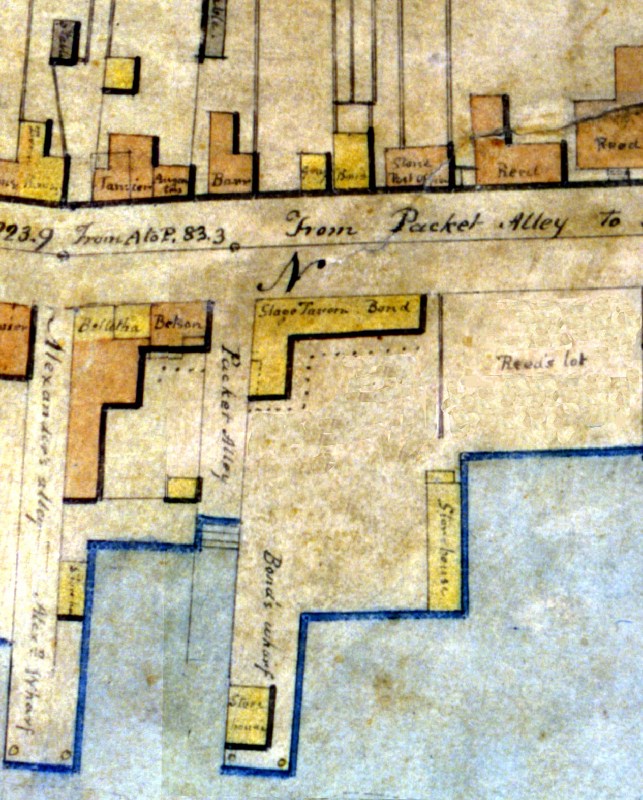 Tanner
Barn
Barn
Stone
Reed
Reed
923.9 From A to P. 83.3
From Packet Alley to
N
Bellotha
Betson
Stage Tavern Bond
Reed's lot
Alexander's alley
Packet Alley
Storehouse
Store
Bond's wharf
Alexr Wharf
Store
house